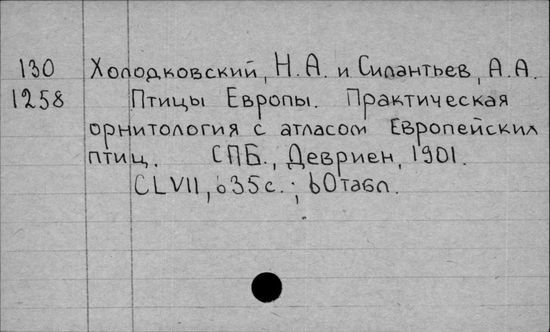 130 Холодковский, Н.А. и Силантьев, А.А.
1258 Птицы Европы. Практическая
орнитология с атласом Европейских
птиц. СПБ., Девриен, 1901.
CLVII, 635с.; 60табл.